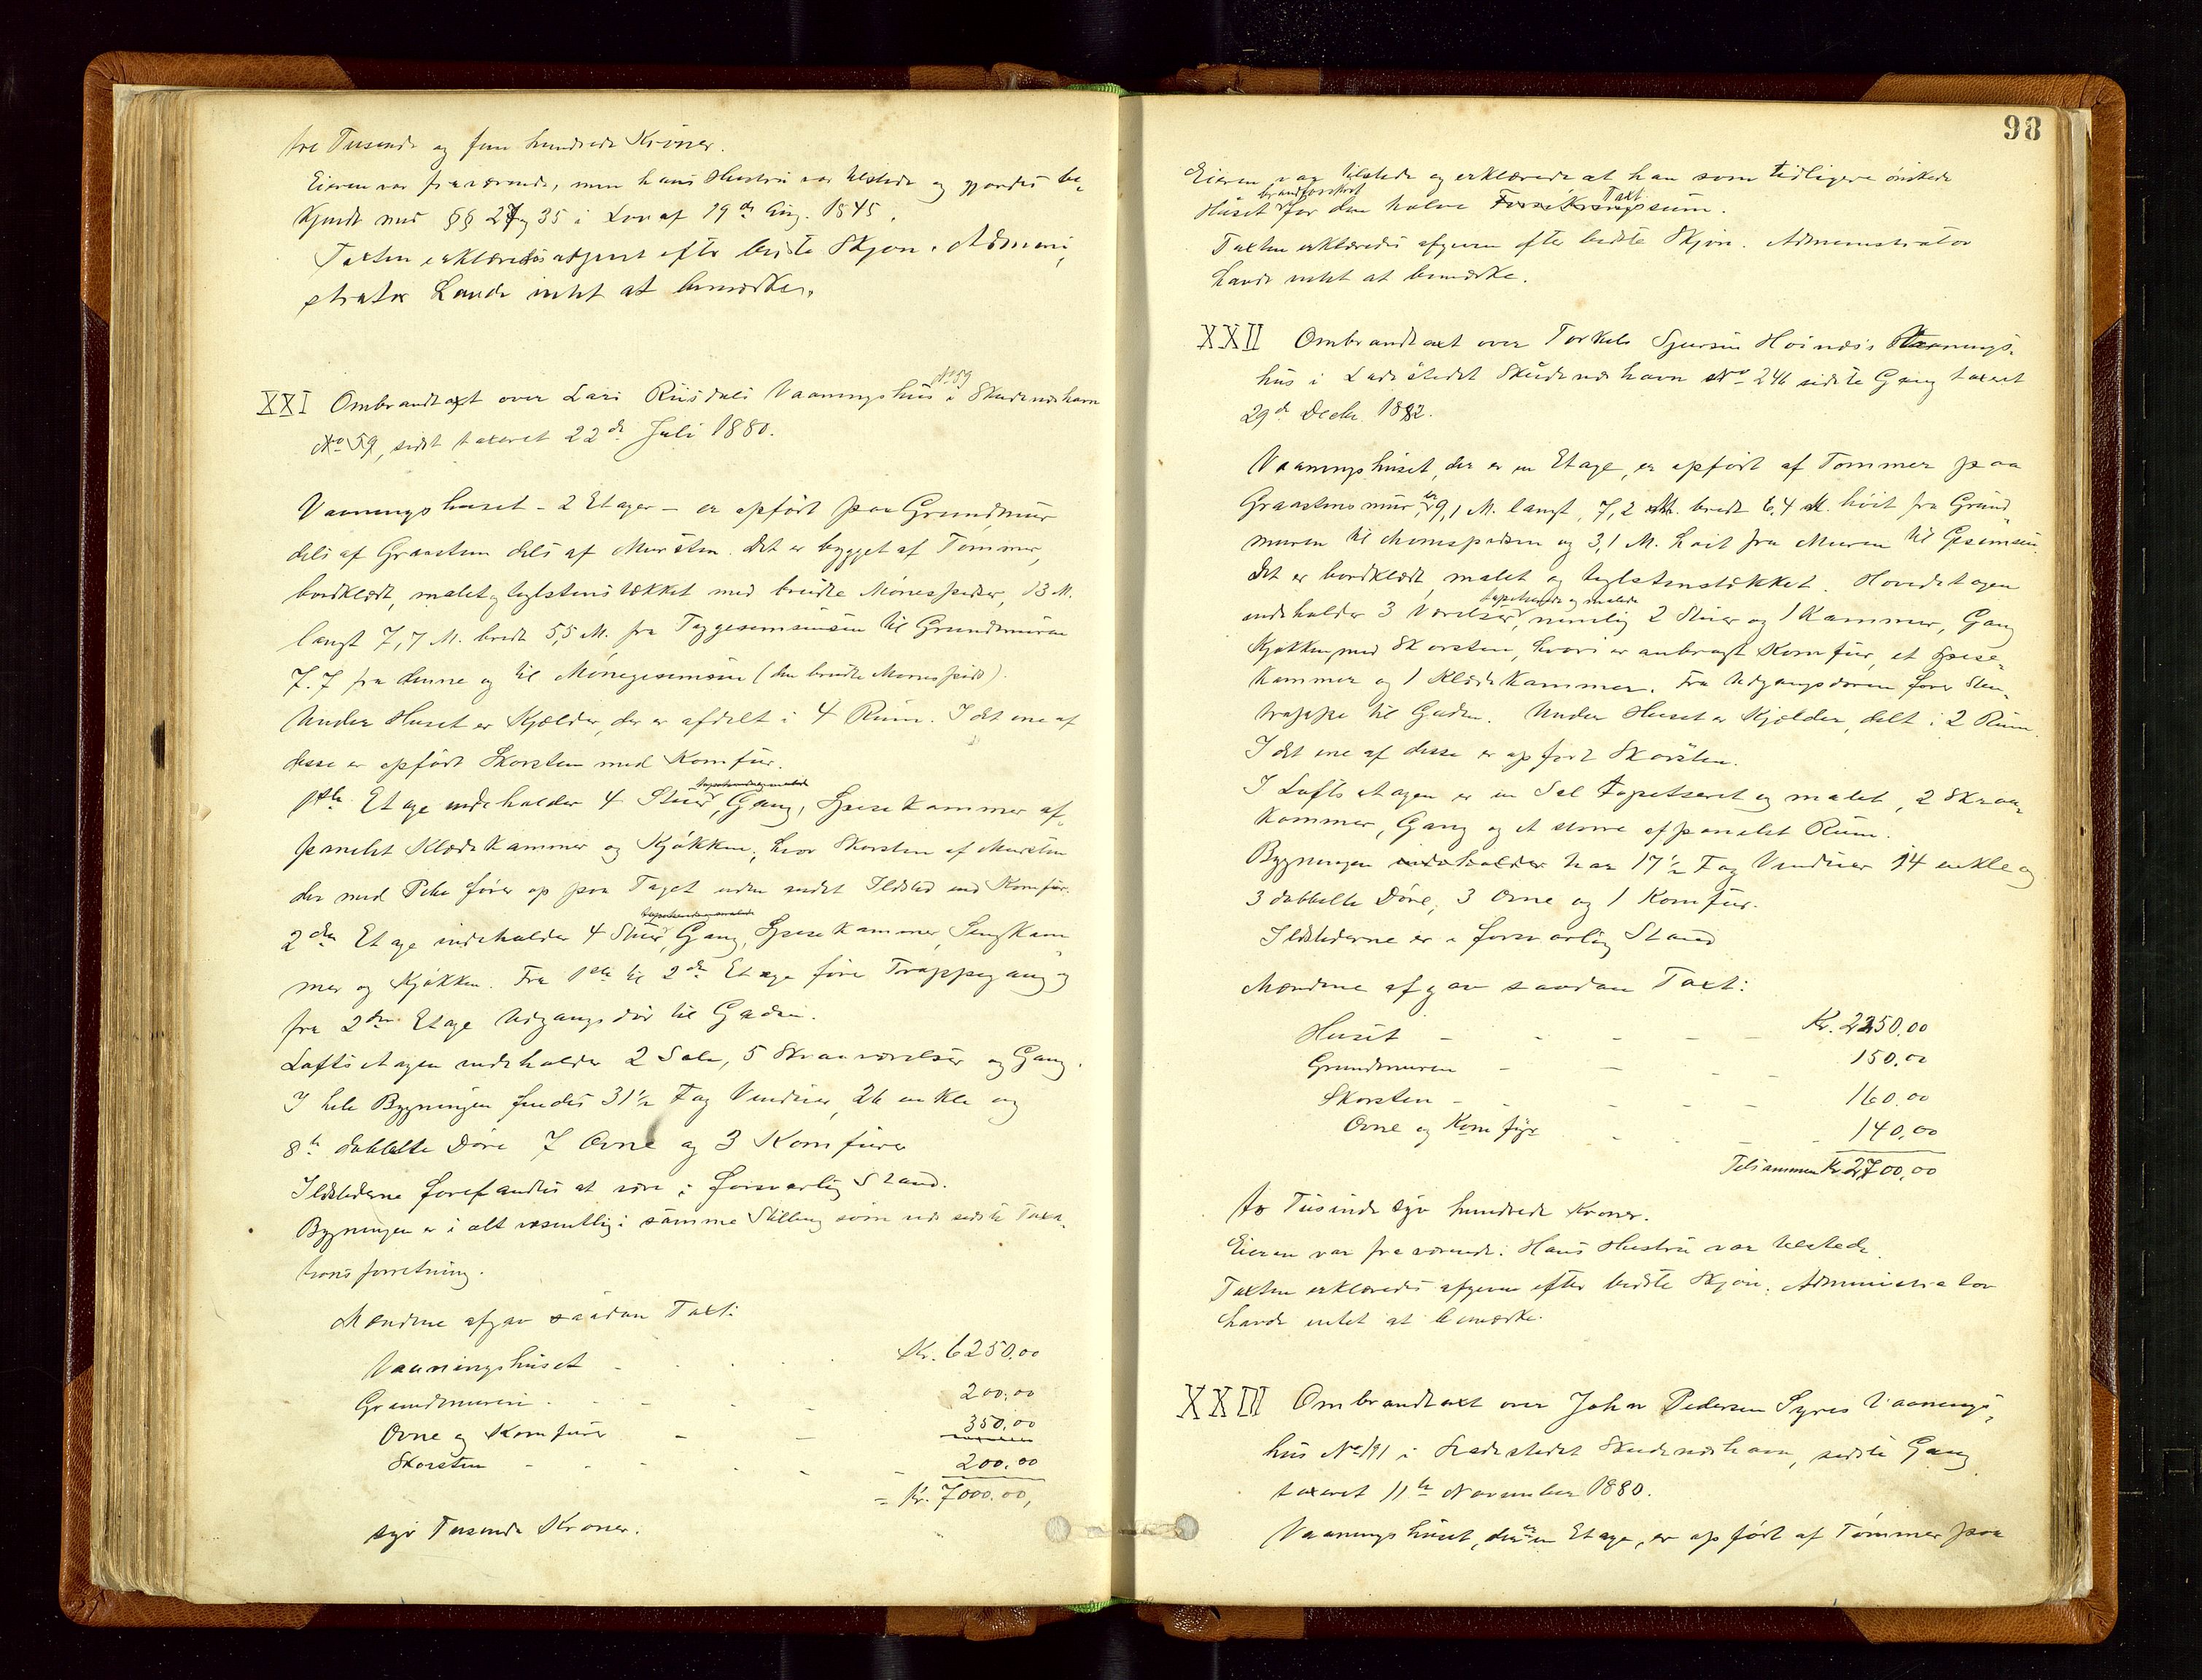 tre Tusende og fem hundrede Kroner.
Eieren var fraværende, men hans Hustru var tilstede og gjordes be-
kjendt med §§ 27 og 35 i Lov af 19de Aug. 1845.
Taxten erklæredes afgivet efter bedste Skjøn. Admini-
strator havde intet at bemærke.
XXI Ombrandtaxt over Lars Riisdals Vaaningshus No 59 i Skudeneshavn
No 59, sidst taxeret 22de Juli 1880.
Vaaningshuset - 2 Etager - er opført paa Grundmur
dels af Graasten dels af Mursten. Det er bygget af Tømmer,
bordklædt, malet og tagstenstækket med brudte Mønespidser, 13 M.
langt 7,7 M. bredt 5,5 M. fra Taggesimsen til Grundmuren
7.7 fra denne og til Mønegesimsen (den brudte Mønespids).
Under Huset er Kjælder, der er afdelt i 4 Rum. I det ene af
disse er opført Skorsten med Komfur.
1ste Etage indeholder 4 Stuer, tapetserede og malede Gang, Spisekammer af-
panelet Klædekammer og Kjøkken, hvor Skorsten af Mursten
der med Pibe fører op paa Taget uden andet Ildsted end Komfur.
2den Etage indeholder 4 Stuer, tapetserede og malede Gang, Spisekammer, Sengkam
mer og Kjøkken. Fra 1ste til 2den Etage fører Trappegang og
fra 2den Etage Udgangsdør til Gaden.
Loftsetagen indeholder 2 Sale, 5 Skraaværelser og Gang.
I hele Bygningen findes 31 1/2 Fag Vinduer, 26 enkle og
8te dobbelte Døre 7 Ovne og 3 Komfurer
Ildstederne forefandtes at være i forsvarlig Stand.
Bygningen er i alt væsentlig i samme Stilling som ved sidste Taxa-
tionsforretning.
Mændene afgav saadan Taxt:
Vaaningshuset - Kr. 6250.00
Grundmuren - 200.00
Ovne og Komfurer - 350.00
Skorsten - 200.00
= Kr. 7000.00,
syv Tusende Kroner.
98
Eieren var tilstede og erklærede at han som tidligere ønskede
Huset brandforsikret for den halve Forsikrings Taxt sum.
Taxten erklæredes afgiven efter bedste Skjøn. Administrator
havde intet at bemærke.
XXII Ombrandtaxt over Torkels Sjursen Høinæs's Vaanings-
hus i Ladestedet Skudeneshavn No 246 sidste Gang taxeret
29de Decbr 1882.
Vaaningshuset, der er en Etage, er opført af Tømmer paa
Graastensmur, er 9,1 M. langt, 7,2 M. bredt 6,4 M. høit fra Grund-
muren til Mønespidsen og 3,1 M. høit fra Muren til Gesimsen.
Det er bordklædt, malet og taglstenstækket. Hovedetagen
indeholder 3 Værelser, tapetserede og malede nemlig 2 Stuer og 1 Kammer, Gang
Kjøkken med Skorsten, hvori er anbragt Komfur, et Spise-
kammer og 1 Klædekammer. Fra Udgangsdøren fører Sten-
trappe til Gaden. Under Huset er Kjælder, delt i 2 Rum.
I det ene af disse er opført Skorsten.
I Loftsetagen er en Sal tapetseret og malet, 2 Skraa-
kammer, Gang og et større afpanelet Rum.
Bygningen indeholder har 17 1/2 Fag Vinduer 14 enkle og
3 dobbelte Døre, 3 Ovne og 1 Komfur.
Ildstederne er i forsvarlig Stand
Mændene afgav saadan Taxt:
Huset - Kr. 2250.00
Grundmuren - 150.00
Skorsten - 160.00
Ovne og Komfyr 140.00
Tilsammen Kr. 2700,00
to Tusinde syv hundrede Kroner.
Eieren var fraværende. Hans Hustru var tilstede.
Taxten erklæredes afgiven efter bedste Skjøn. Administrator
havde intet at bemærke.
XXIII Ombrandtaxt over Johan Pedersen Syres Vaanings-
hus No 191 i Ladestedet Skudeneshavn, sidste Gang
taxeret 11te November 1880.
Vaaningshuset, der er en Etage, er opført af Tømmer paa